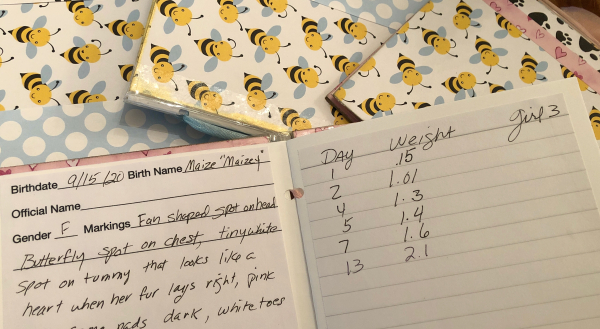 Birthdate 9/15/20 Birth Name Maize "Maizey"
Official Name
Gender F Markings Fan shaped spot on head
Butterfly spot on chest, tiny white
spot on tummy that looks like a
heart when her fur lays right, pink
pads dark, white toes
Girl 3
DAY Weight
1 .15
2 1.01
4 1.3
5 1.4
7 1.6
13 2.1